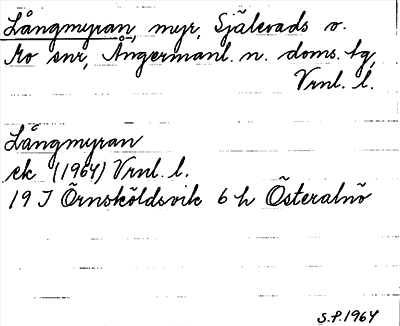 Långmyran, myr, Själevads o.
Mo snr, Ångermanl. n. doms. tg,
Vrnl. l.
Långmyran
ek (1964) Vrnl. l.
19 J Örnsköldsvik 6 h Österalnö
S.P. 1964